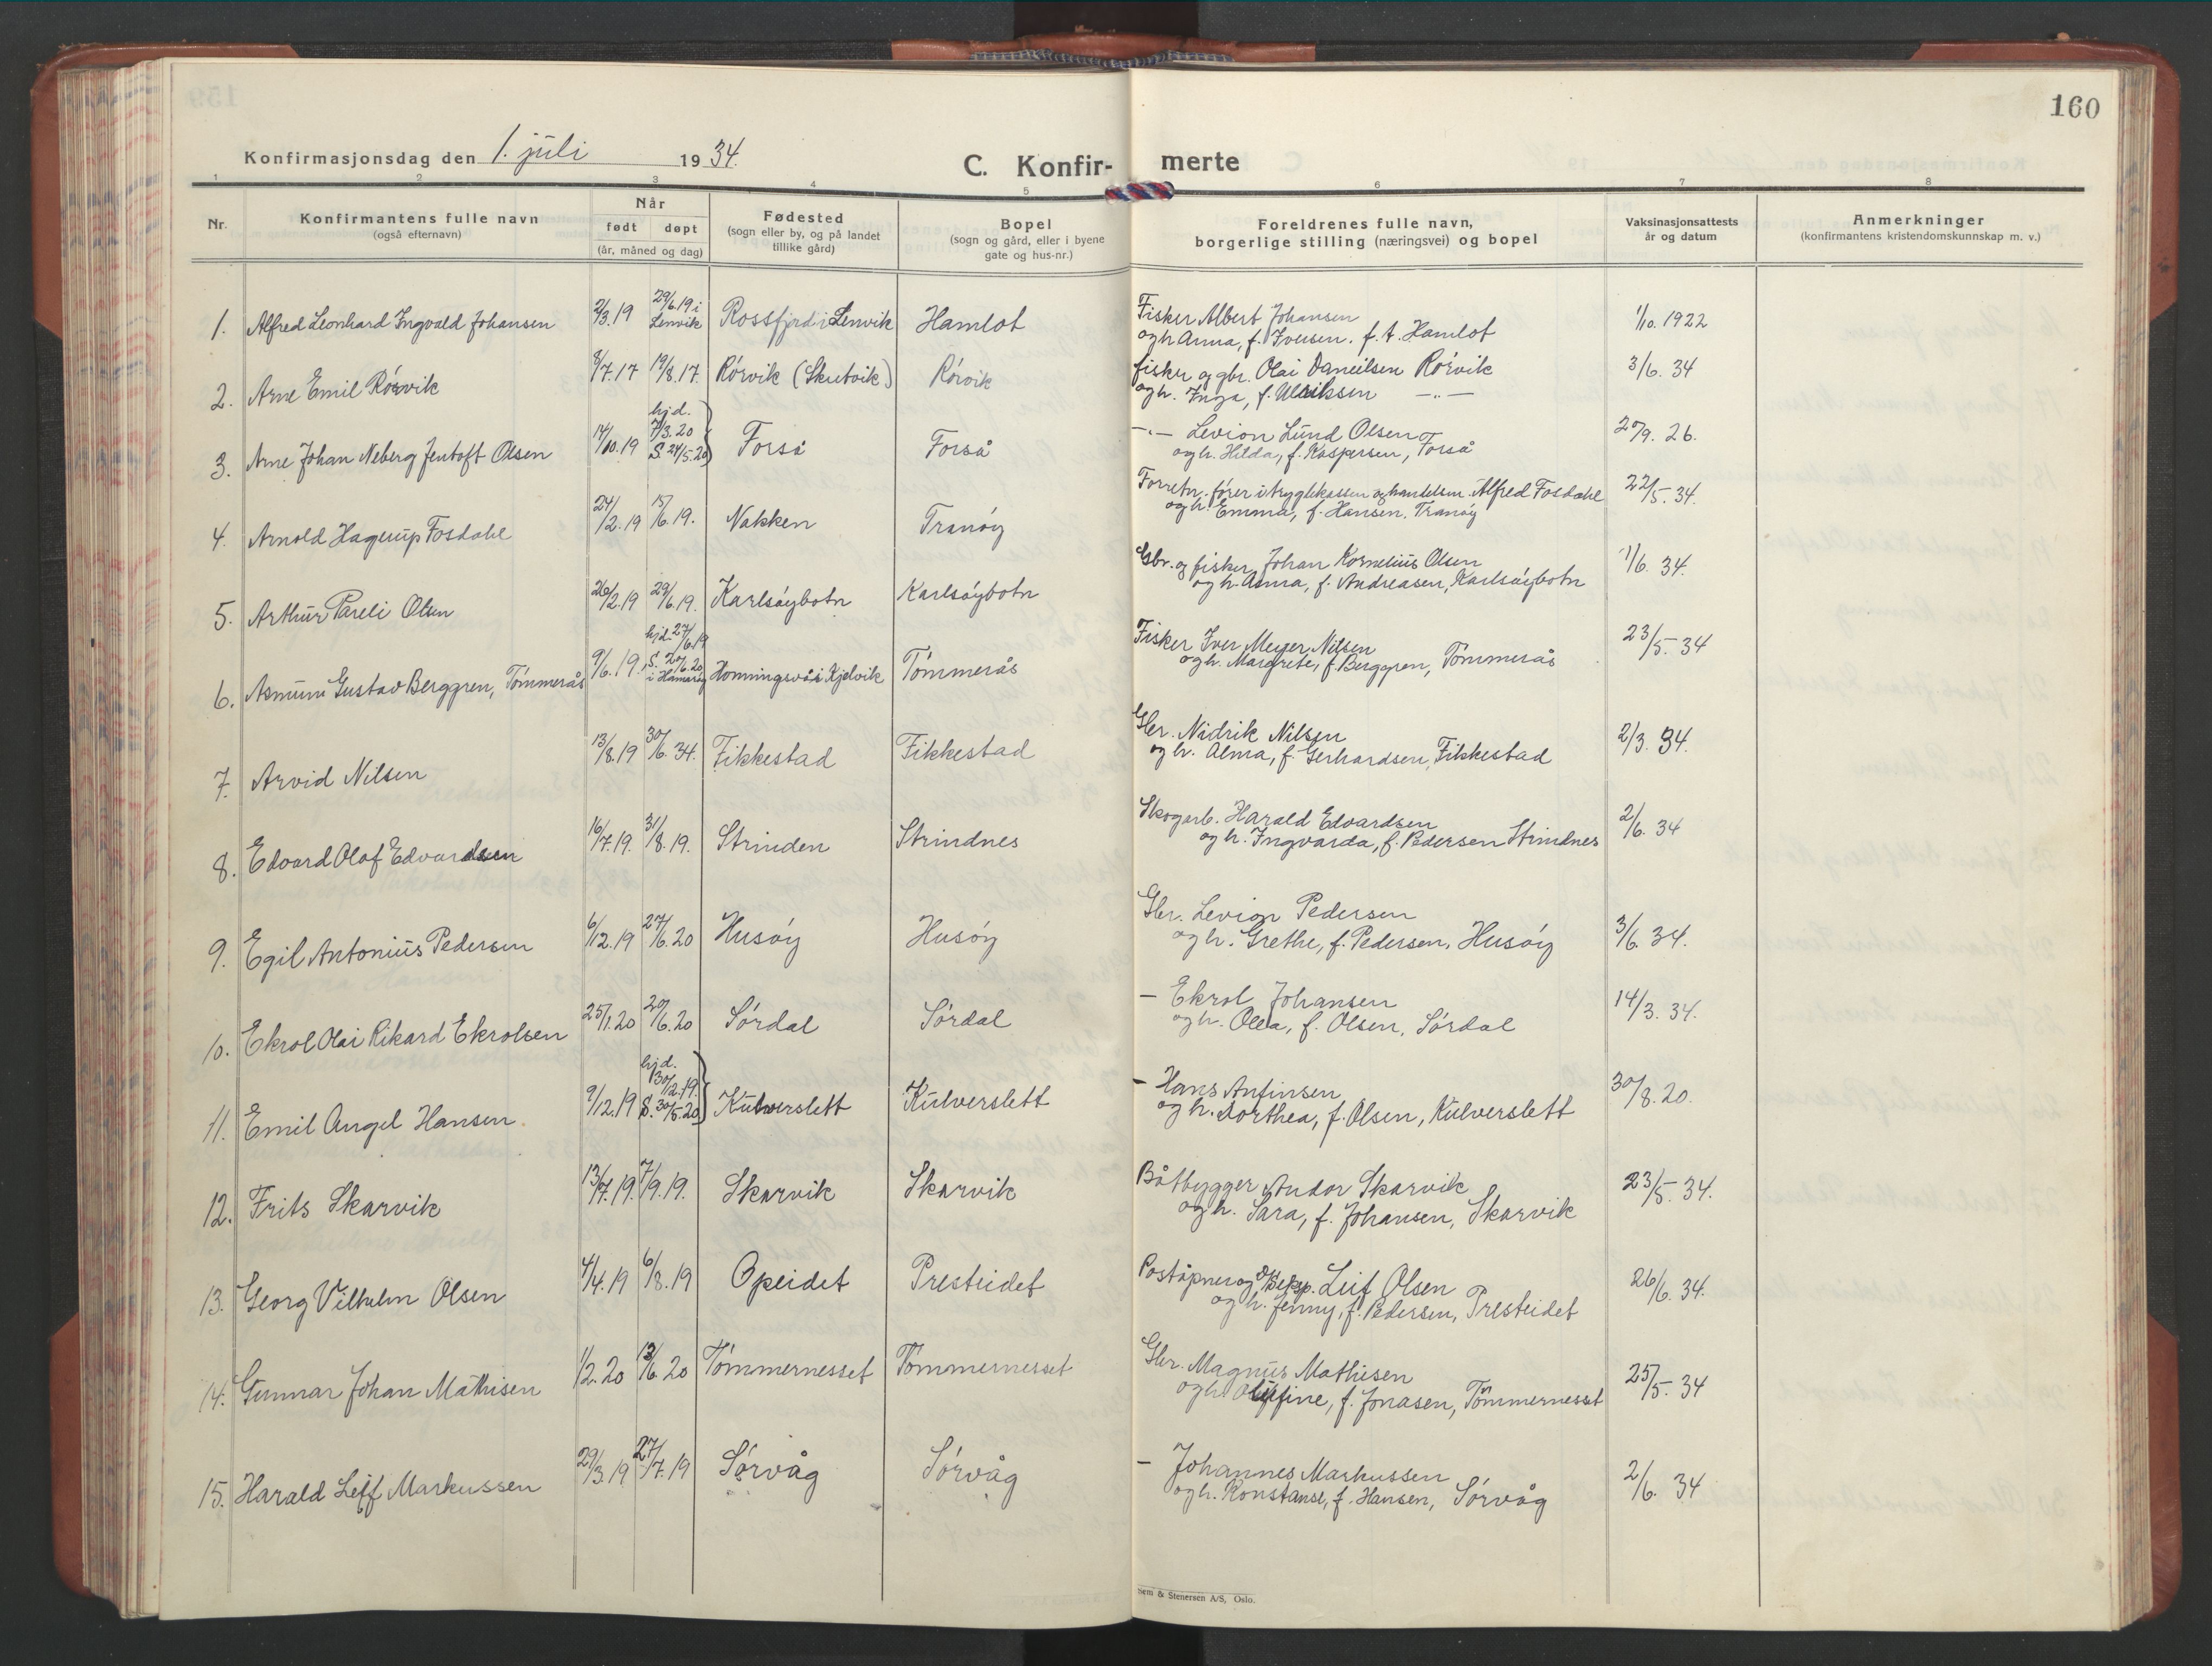 160
Konfirmasjonsdag den 1. juli 1934.
C. Konfir- merte
1 2 3 4 5 6 7 8
Nr.
Konfirmantens fulle navn
(også efternavn)
Når
født døpt
(år, måned og dag)
Fødested
(sogn eller by, og på landet
tillike gård)
Bopel
(sogn og gård, eller i byene
gate og hus-nr.)
Foreldrenes fulle navn,
borgerlige stilling (næringsvei) og bopel
Vaksinasjonsattests
år og datum
Anmerkninger
(konfirmantens kristendomskunnskap m. v.)
1. Alfred Leonhard Ingvald Johansen 2/3.19 29/6.19 i Lenvik Rossfjord i Lenvik Hamlot
Fisker Albert Johansen
og h. Anna, f. Iversen. f. t. Hamlot
1/10. 1922
2. Arne Emil Rørvik 8/7.17 19/8.17. Rørvik (Skutvik) Rørvik
fisker og gbr. Olai Danielsen Rørvik
og h. Inga, f. Ulriksen —"—
3/6. 34
3. Arne Johan Neberg Jentoft Olsen 14/10.19 hjd. 7/3.20 S. 24/5.20 Forså Forså
—"— Levion Lund Olsen
og h. Hilda, f. Kaspersen, Forså
27/9. 26.
4. Arnold Hagerup Fosdahl 24/2.19 15/6.19. Nakken Tranøy
Forretn. fører i trygdekassen og handelsm. Alfred Fosdahl
og h. Emma, f. Hansen. Tranøy
22/5. 34.
5. Arthur Pareli Olsen 26/2.19 29/6.19. Karlsøybotn Karlsøybotn
Gbr. og fisker Johan Kornelius Olsen
og h. Anna, f. Andreasen, Karlsøybotn
1/6. 34.
6. Asmunn Gustav Berggren, Tømmerås 9/6.19. hjd. 27/6.19 S. 27/6.20 i Hamarøy Honningsvåg i Kjelvik Tømmerås
Fisker Iver Meyer Nilsen
og h. Margrete, f. Berggren, Tømmerås
23/5. 34
7. Arvid Nilsen 13/8.19 30/6.34. Fikkestad Fikkestad
Gbr. Nidrik Nilsen
og h. Alma, f. Gerhardsen, Fikkestad
2/3. 34.
8. Edvard Olaf Edvardsen 16/7.19. 31/8.19. Strinden Strindnes
Skogarb. Harald Edvardsen
og h. Ingvarda, f. Pedersen Strindnes
2/6. 34
9. Egil Antonius Pedersen 6/12.19 27/6.20 Husøy Husøy
Gbr. Levion Pedersen
og h. Grethe, f. Pedersen, Husøy
3/6. 34.
10. Ekrol Olai Rikard Ekrolsen 25/1.20 20/6.20 Sørdal Sørdal
— Ekrol Johansen
og h. Olea, f. Olsen, Sørdal
14/3. 34.
11. Emil Angel Hansen. 9/12.19 hjd. 30/12.19. S. 30/5.20 Kulverslett Kulverslett
— Hans Anfinsen
og h. Dorthea, f. Olsen, Kulverslett
30/8. 20.
12. Frits Skarvik 13/7.19. 7/9.19. Skarvik Skarvik
Båtbygger Andor Skarvik
og h. Sara, f. Johansen, Skarvik
23/5. 34.
13. Georg Vilhelm Olsen 4/4.19 6/8.19 Opeidet Presteidet
Poståpner og Leif Olsen
og h. Jenny, f. Pedersen, Presteidet
26/6. 34.
14. Gunnar Johan Mathisen 1/2.20 13/6.20 Tømmernesset Tømmernesset
Gbr. Magnus Mathisen
og h. f. Jonasen, Tømmernesset
25/5. 34
15. Harald Leif Markussen 29/3.19 27/7.19 Sørvåg Sørvåg
— Johannes Markussen
og h. Konstanse, f. Hansen, Sørvåg
2/6. 34
& Stenersen A/S, Oslo.